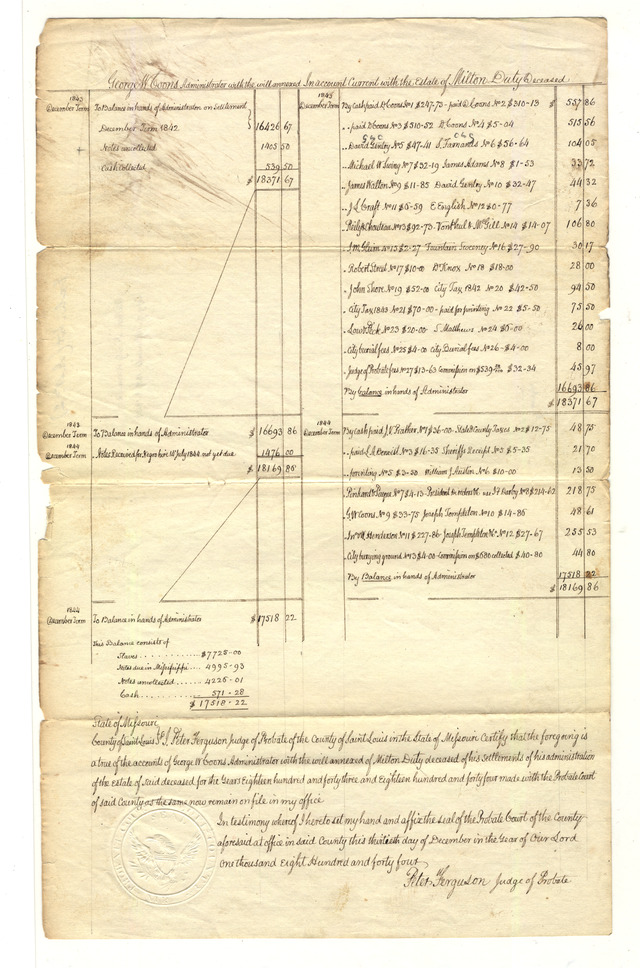 George W Coons Administrator with the will annexed In account Current with the Estate of Milton Duty Deceased
1843
December Term To Balance in hands of Administrator on Settlement
December Term 1842. 16426 67
Notes uncollected 1405 50
Cash collected 539 50
$ 18371 67
1843
December Term By Cash paid D Coons No 1 $247-73- paid D Coons No 2 $310-13 $ 557 86
„ paid D Coons No 3 $510-52 D Coons No 4 $5-04 515 56
„ David Gentry No 5 $47-41 S. Farnandis No 6 $56-64 104 05
„ Michael W Irving No 7 $32-19 James Adams No 8 $1-53 33 72
„ James Walton No 9 $11-85 David Gentry No 10 $32-47 44 32
„ J L Craft No 11 $6-59 E English No 12 $0-77 7 36
Philip Chouteau No 13 $92-73- Vonthul & McGill No 14 $14-07 106 80
No 15 $2-27 Fountain Sweeney No 16 $27-90 30 17
„ Robert Street No 17 $10-00 Dr Knox No 18 $18-00 28 00
„ John Shore No 19 $52-00 City Tax 1842 No 20 $42-50 94 50
„ City Tax 1843 No 21 $70-00- paid for printing No 22 $5-50 75 50
No 23 $20-00 S. Matthews No 24 $6-00 26 00
„ City burial fees No 25 $4-00 City Burial fees No 26-$4-00 8 00
„ Judge of Probate fees No 27 $13-63 Commission on $539- $32-34 45 97
By balance in hands of Administrator 16693 86
$ 18371 67
1843
December Term To Balance in hands of Administrator $ 16693 86
1844
December Term „ Notes Received for Negro hire 1st July 1844 not yet due 1476 00
$ 18169 86
1844
December Term By Cash paid J. V Prather No 1 $36-00 State & County Taxes No 2 $12-75 48 75
„ paid L A Benoist No 3 $16-35 Sheriffs Receipt No 3 $5-35 21 70
„ printing No 5 $3-50 William J Austin No 6 $10-00 13 50
No 7 $4-13- President Directors &c use Ft Darby No 8 $214-62 218 75
G W Coons No 9 $33-75 Joseph Templeton No 10 $14-86 48 61
Henderson No 11 $227-86 Joseph Templeton &c No 12 $27-67 255 53
„ City burying ground No 13 $4-00 Commission on $680 collected $40-80 44 80
By Balance in hands of Administrator 17518 22
$ 18169 86
1844
December Term To Balance in hands of Administrator $ 17518 22
This Balance consists of
Slaves . . . . . . . . . . $7725-00
Notes due in Missippi . . . 4995-93
Notes uncollected . . . . . 4226-01
Cash . . . . . . . . . . 571-28
$ 17518-22
State of Missouri
County of Saint Louis I, Peter Ferguson Judge of Probate of the County of Saint Louis in the State of Missouri Certify that the foregoing is
a true of the accounts of George W Coons Administrator with the will annexed of Milton Duty deceased of his Settlements of his administration
of the Estate of said deceased for the Years Eighteen hundred and forty three and Eighteen hundred and forty four made with the Probate Court
of said County as the same now remain on file in my office
In testimony whereof I hereto set my hand and affix the seal of the Probate Court of the County
aforesaid at office in said County this thirtieth day of December in the Year of Our Lord
One thousand Eight Hundred and forty four
Peter Ferguson Judge of Probate